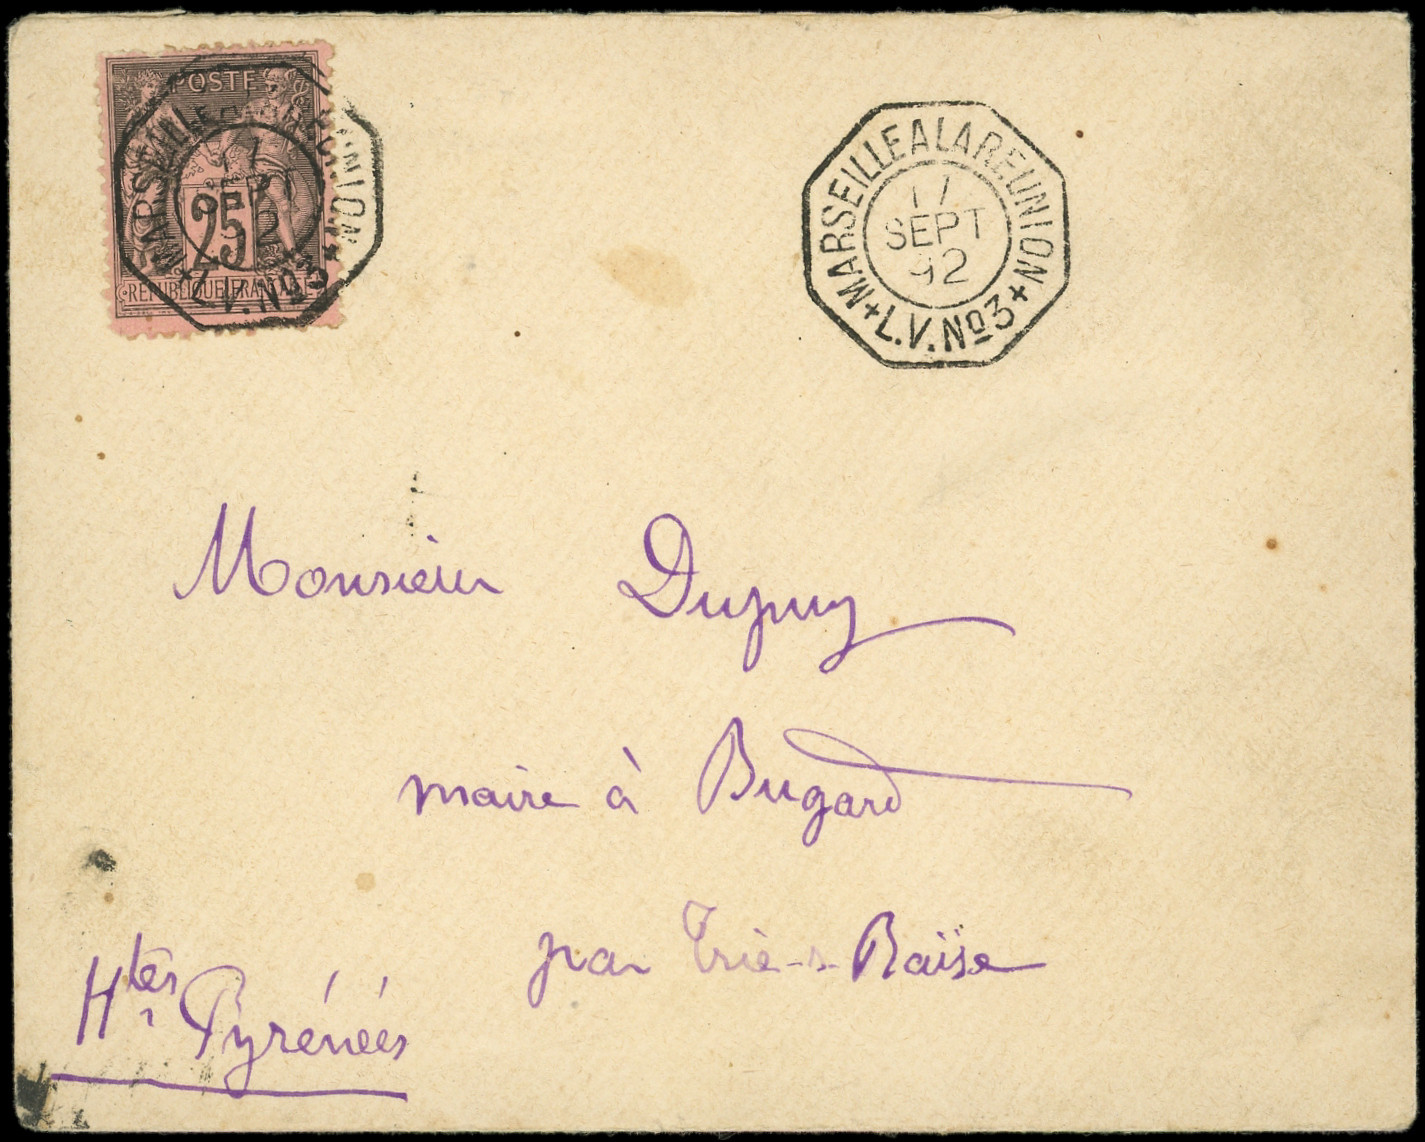 POSTE
25
REPUBLIQUE FRANCAISE
MARSEILLE A LA REUNION
17
SEPT
92
L.V. No 3
MARSEILLE A LA REUNION
17
SEPT
92
L.V. No 3
Monsieur Dupuy
maire à Bugard
par Trie-s-Baïse
Htes Pyrénées